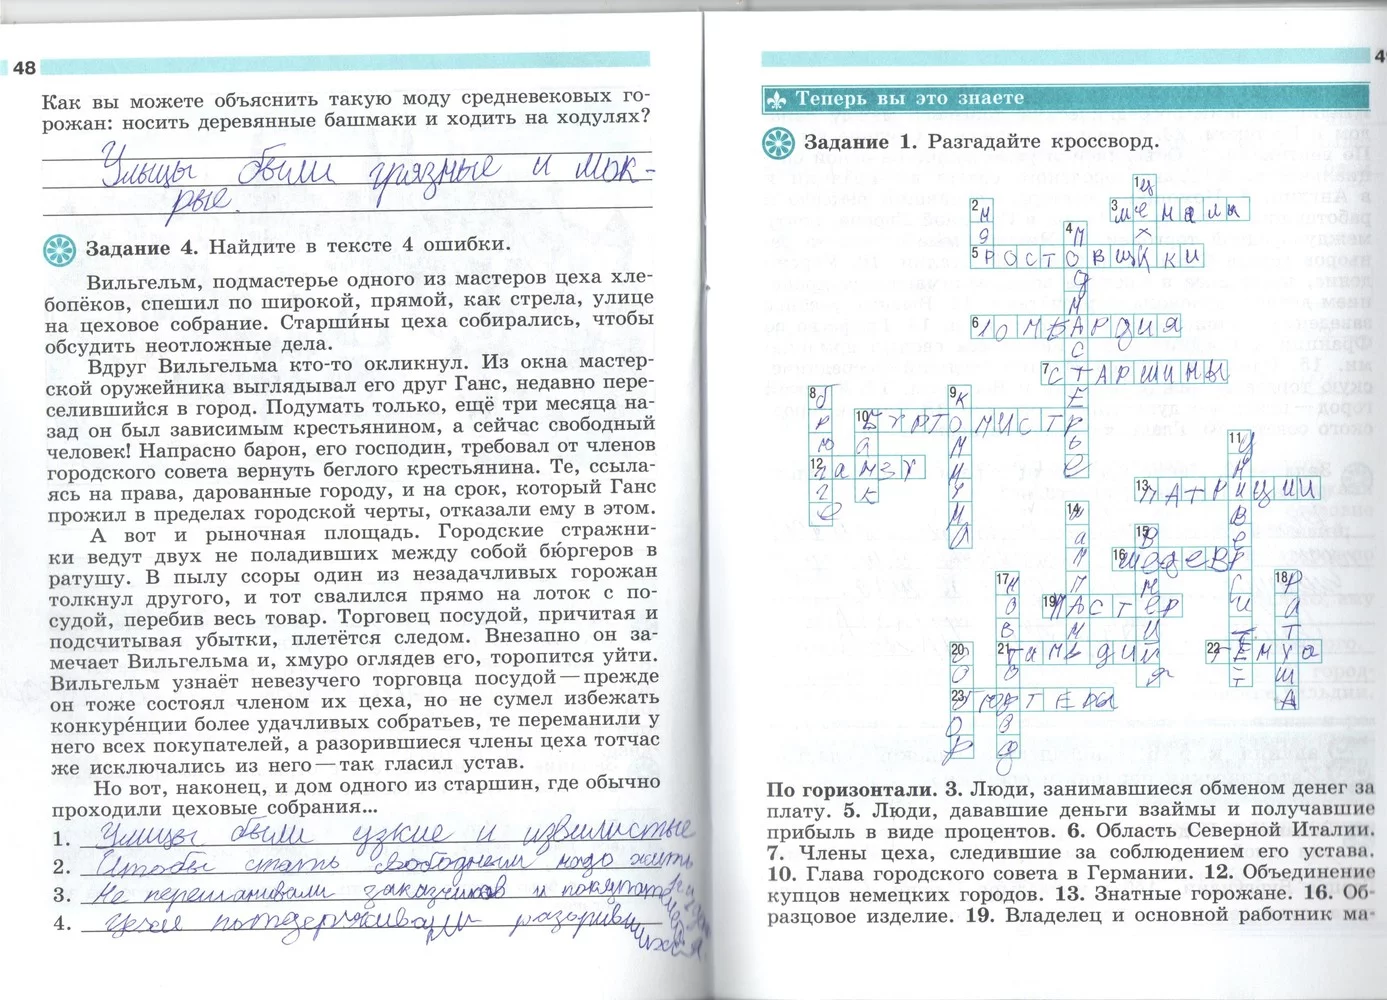 48
Как вы можете объяснить такую моду средневековых го-
рожан: носить деревянные башмаки и ходить на ходулях?
Улицы были грязные и мок-
рые.
Задание 4. Найдите в тексте 4 ошибки.
Вильгельм, подмастерье одного из мастеров цеха хле-
бопёков, спешил по широкой, прямой, как стрела, улице
на цеховое собрание. Старши́ны цеха собирались, чтобы
обсудить неотложные дела.
Вдруг Вильгельма кто-то окликнул. Из окна мастер-
ской оружейника выглядывал его друг Ганс, недавно пере-
селившийся в город. Подумать только, ещё три месяца на-
зад он был зависимым крестьянином, а сейчас свободный
человек! Напрасно барон, его господин, требовал от членов
городского совета вернуть беглого крестьянина. Те, ссыла-
ясь на права, дарованные городу, и на срок, который Ганс
прожил в пределах городской черты, отказали ему в этом.
А вот и рыночная площадь. Городские стражни-
ки ведут двух не поладивших между собой бю́ргеров в
ратушу. В пылу ссоры один из незадачливых горожан
толкнул другого, и тот свалился прямо на лоток с по-
судой, перебив весь товар. Торговец посудой, причитая и
подсчитывая убытки, плетётся следом. Внезапно он за-
мечает Вильгельма и, хмуро оглядев его, торопится уйти.
Вильгельм узнаёт невезучего торговца посудой — прежде
он тоже состоял членом их цеха, но не сумел избежать
конкуре́нции более удачливых собратьев, те переманили у
него всех покупателей, а разорившиеся члены цеха тотчас
же исключались из него — так гласил устав.
Но вот, наконец, и дом одного из старшин, где обычно
проходили цеховые собрания...
1. Улицы были узкие и извилистые
2. Чтобы стать свободным надо жить
3. Не переманивали заказчиков и покупателей
4. Цехи поддерживали разорившихся
Теперь вы это знаете
Задание 1. Разгадайте кроссворд.
1 цех
3 менялы
2
4 подмастерье
5 Ростовщики
6 Ломбардия
7 Старшины
8 Брюгге
9 Коммуна
10 Бургомистр
11 Университет
12 Ганза
13 Патриции
14
15
16 шедевр
17
18 Ратуша
19 Мастер
20
21 гильдии
22 Темза
23 Готеры
По горизонтали. 3. Люди, занимавшиеся обменом денег за
плату. 5. Люди, дававшие деньги взаймы и получавшие
прибыль в виде процентов. 6. Область Северной Италии.
7. Члены цеха, следившие за соблюдением его устава.
10. Глава городского совета в Германии. 12. Объединение
купцов немецких городов. 13. Знатные горожане. 16. Об-
разцовое изделие. 19. Владелец и основной работник ма-